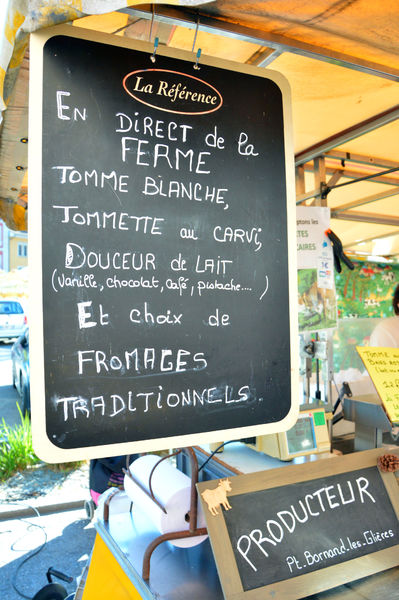 La Référence
EN DIRECT de la
FERME
TOMME BLANCHE,
TOMMETTE au CARVI,
DOUCEUR de LAIT
(Vanille, chocolat, Café, pistache.... )
Et choix de
FROMAGES
TRADITIONNELS.
PRODUCTEUR
Pt. Bornand. les. Glières